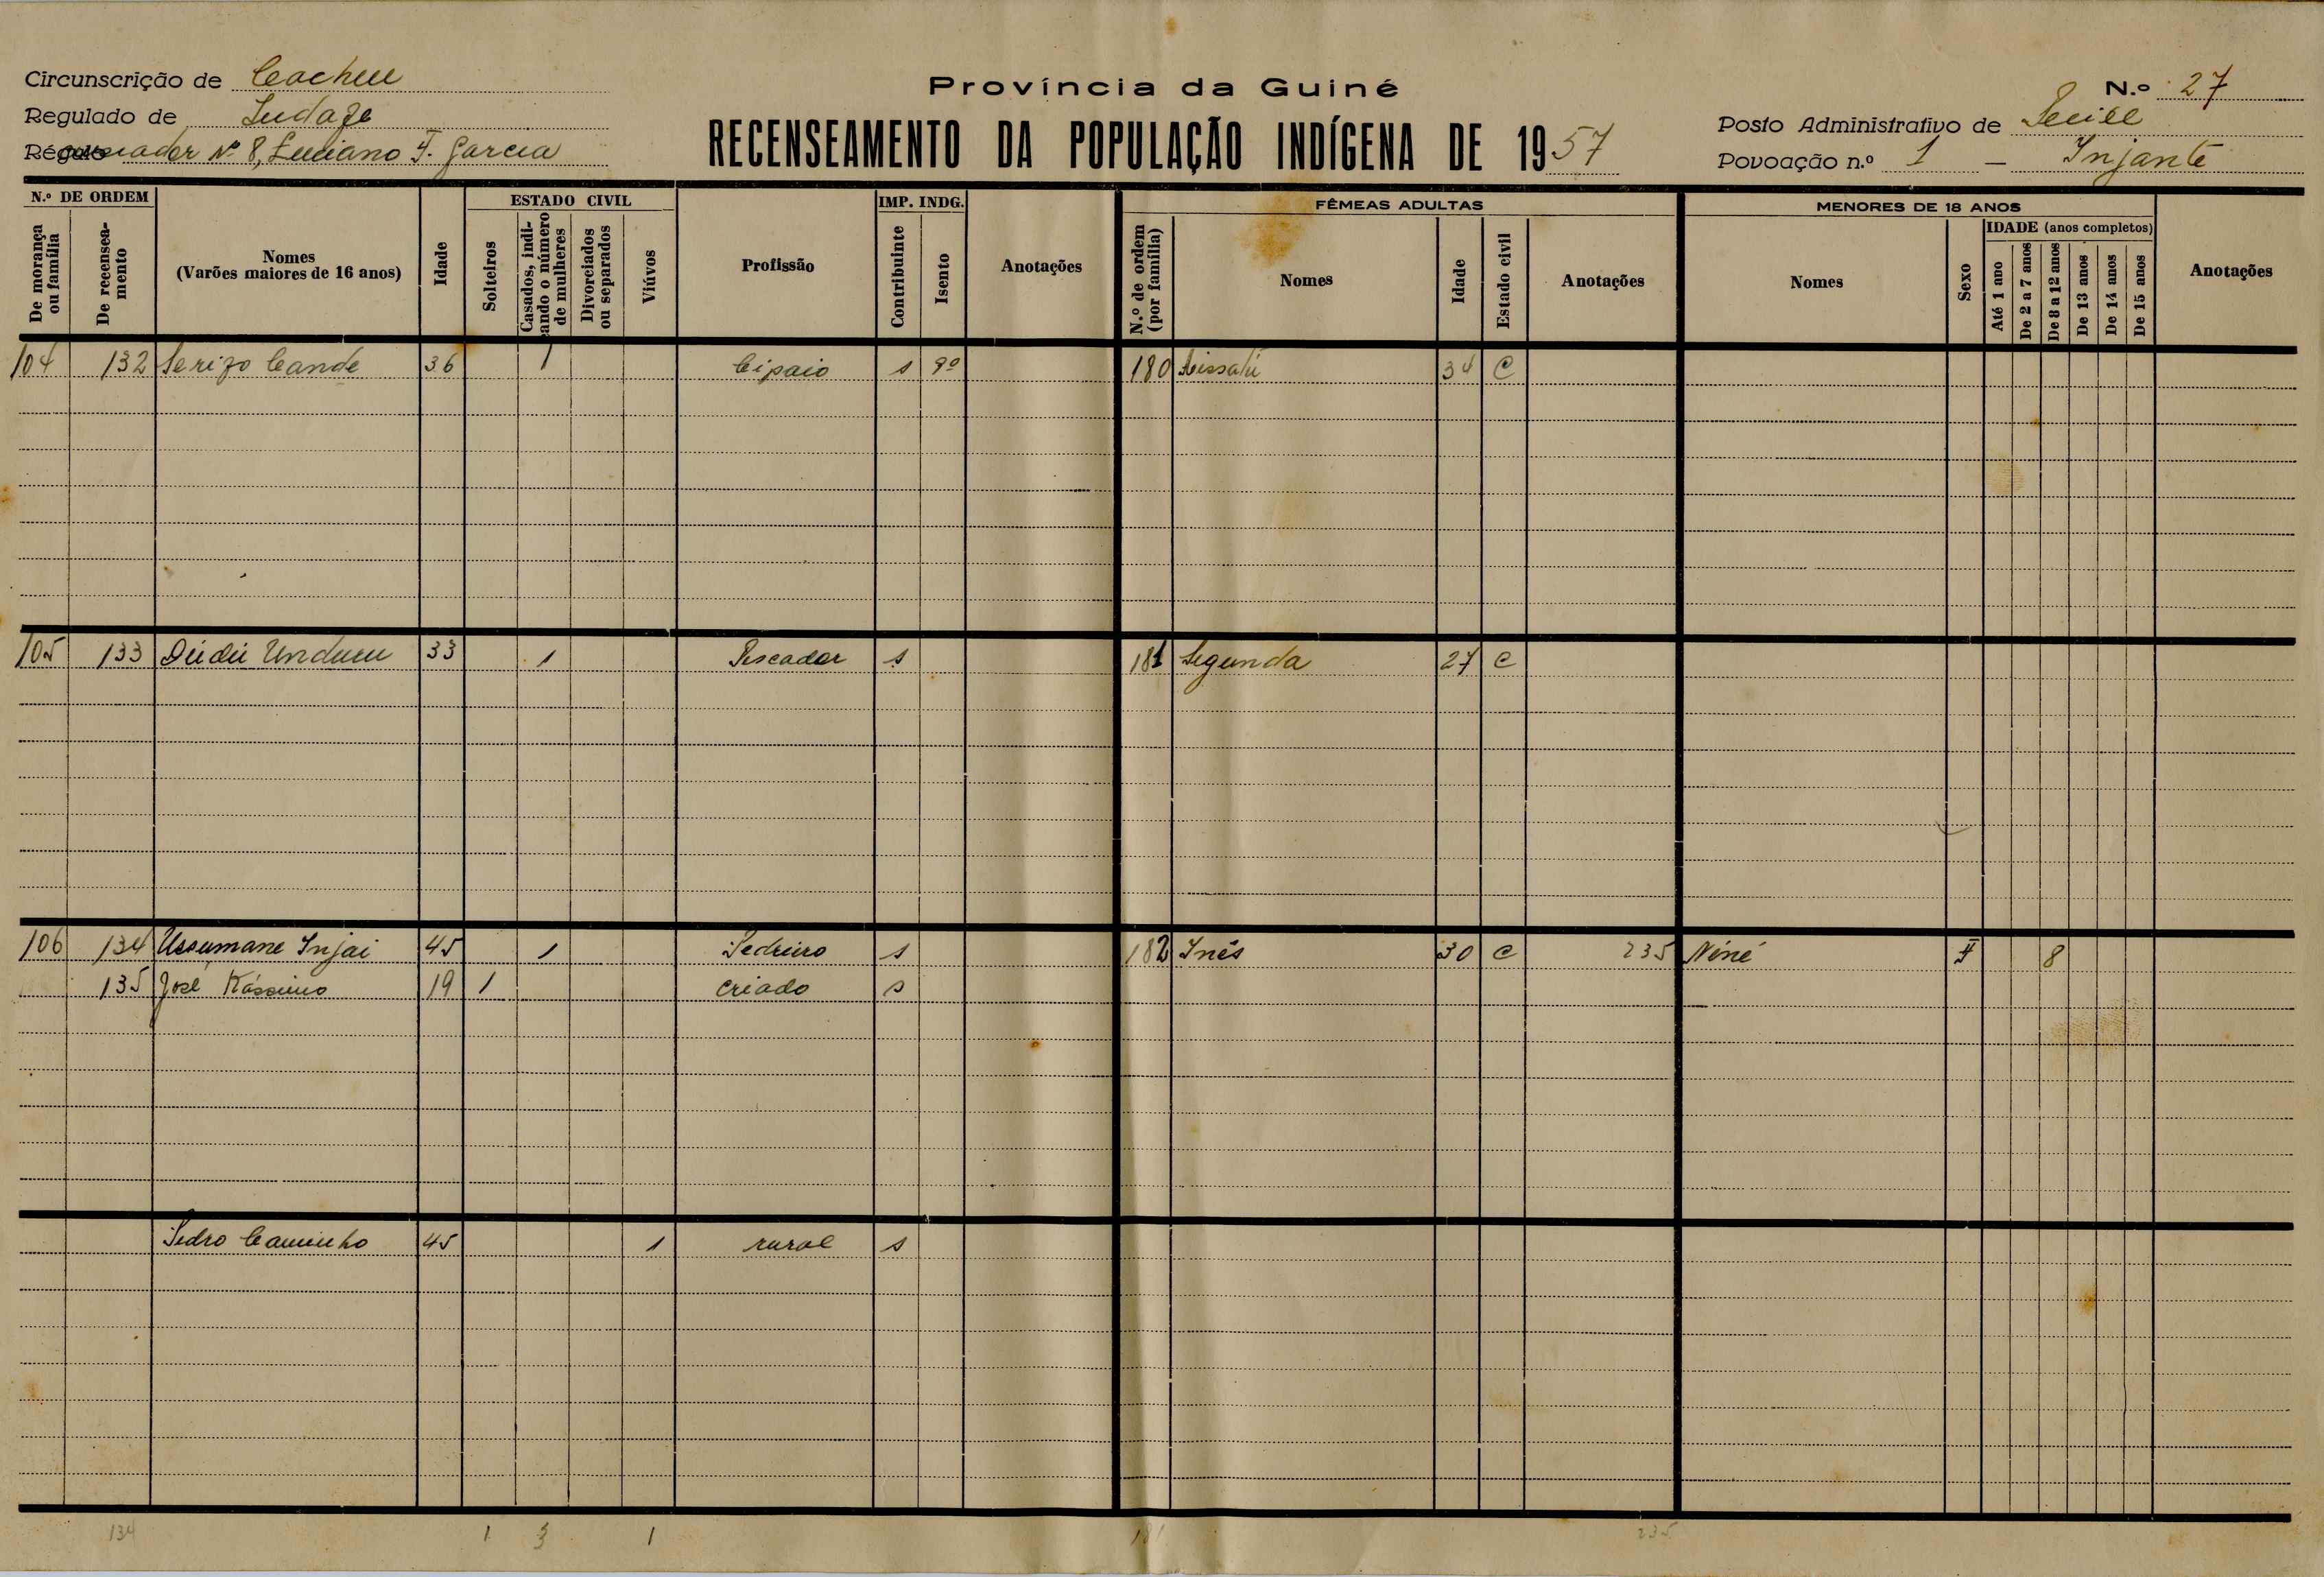 Circunscrição de Cacheu
Província da Guiné
N.º 27
Regulado de
Posto Administrativo de
Régulo Nº 8, Luciano F. Garcia
RECENSEAMENTO DA POPULAÇÃO INDÍGENA DE 1957
Povoação n.º 1 — Injante
N.º DE ORDEM
De morança ou família
De recenseamento
Nomes
(Varões maiores de 16 anos)
Idade
ESTADO CIVIL
Solteiros
Casados, indicando o número de mulheres
Divorciados ou separados
Viúvos
Profissão
IMP. INDG.
Contribuinte
Isento
Anotações
FÊMEAS ADULTAS
N.º de ordem (por família)
Nomes
Idade
Estado civil
Anotações
MENORES DE 18 ANOS
Nomes
Sexo
IDADE (anos completos)
Até 1 ano
De 2 a 7 anos
De 8 a 12 anos
De 13 anos
De 14 anos
De 15 anos
Anotações
104 132 Serifo Cande 36 1 Cipaio s 180 Aissatú 34 C
105 133 Dúdú 33 1 Pescador s 181 Segunda 27 C
106 134 Ussumane Injai 45 1 Pedreiro s 182 Inês 30 C 235 Néné F 8
135 José 19 1 criado s
Pedro 45 1 rural s
134 1 3 1 181 235